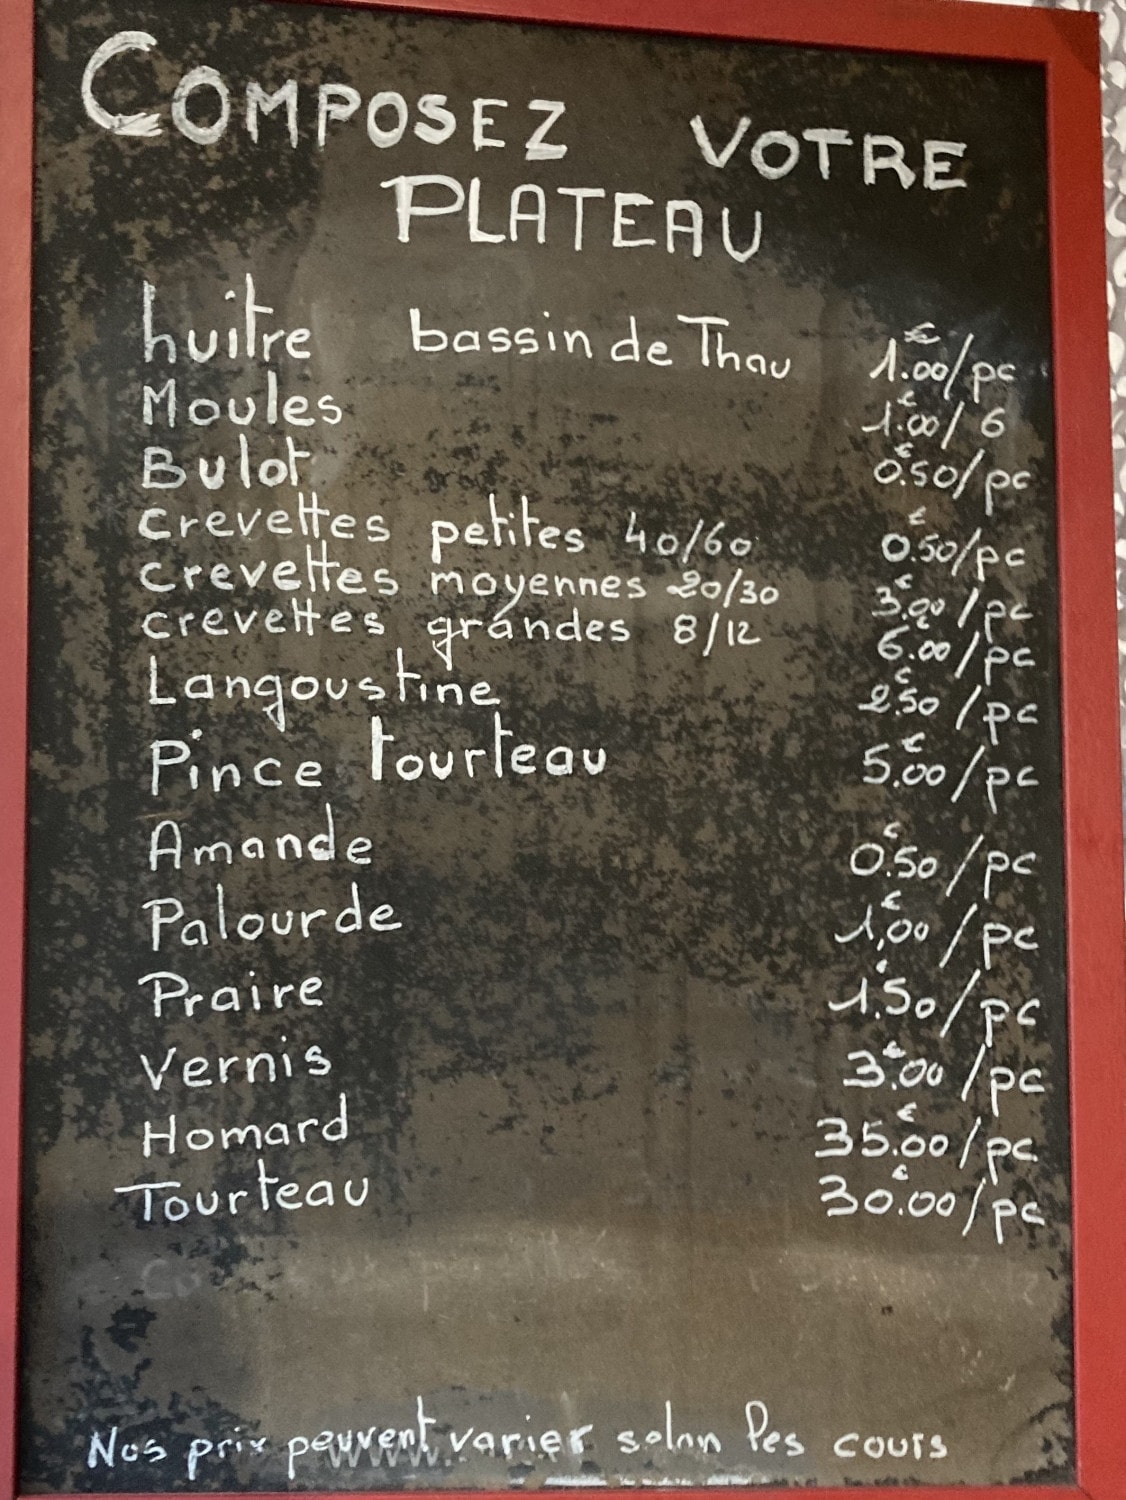 COMPOSEZ VOTRE
PLATEAU
huître bassin de Thau 1.00€/pc
Moules 1.00€/6
Bulot 0.50€/pc
crevettes petites 40/60 0.50€/pc
crevettes moyennes 20/30 3.00€/pc
crevettes grandes 8/12 6.00€/pc
Langoustine 2.50€/pc
Pince tourteau 5.00€/pc
Amande 0.50€/pc
Palourde 1,00€/pc
Praire 1,50€/pc
Vernis 3.00€/pc
Homard 35.00€/pc
Tourteau 30.00€/pc
Nos prix peuvent varier selon les cours
www.